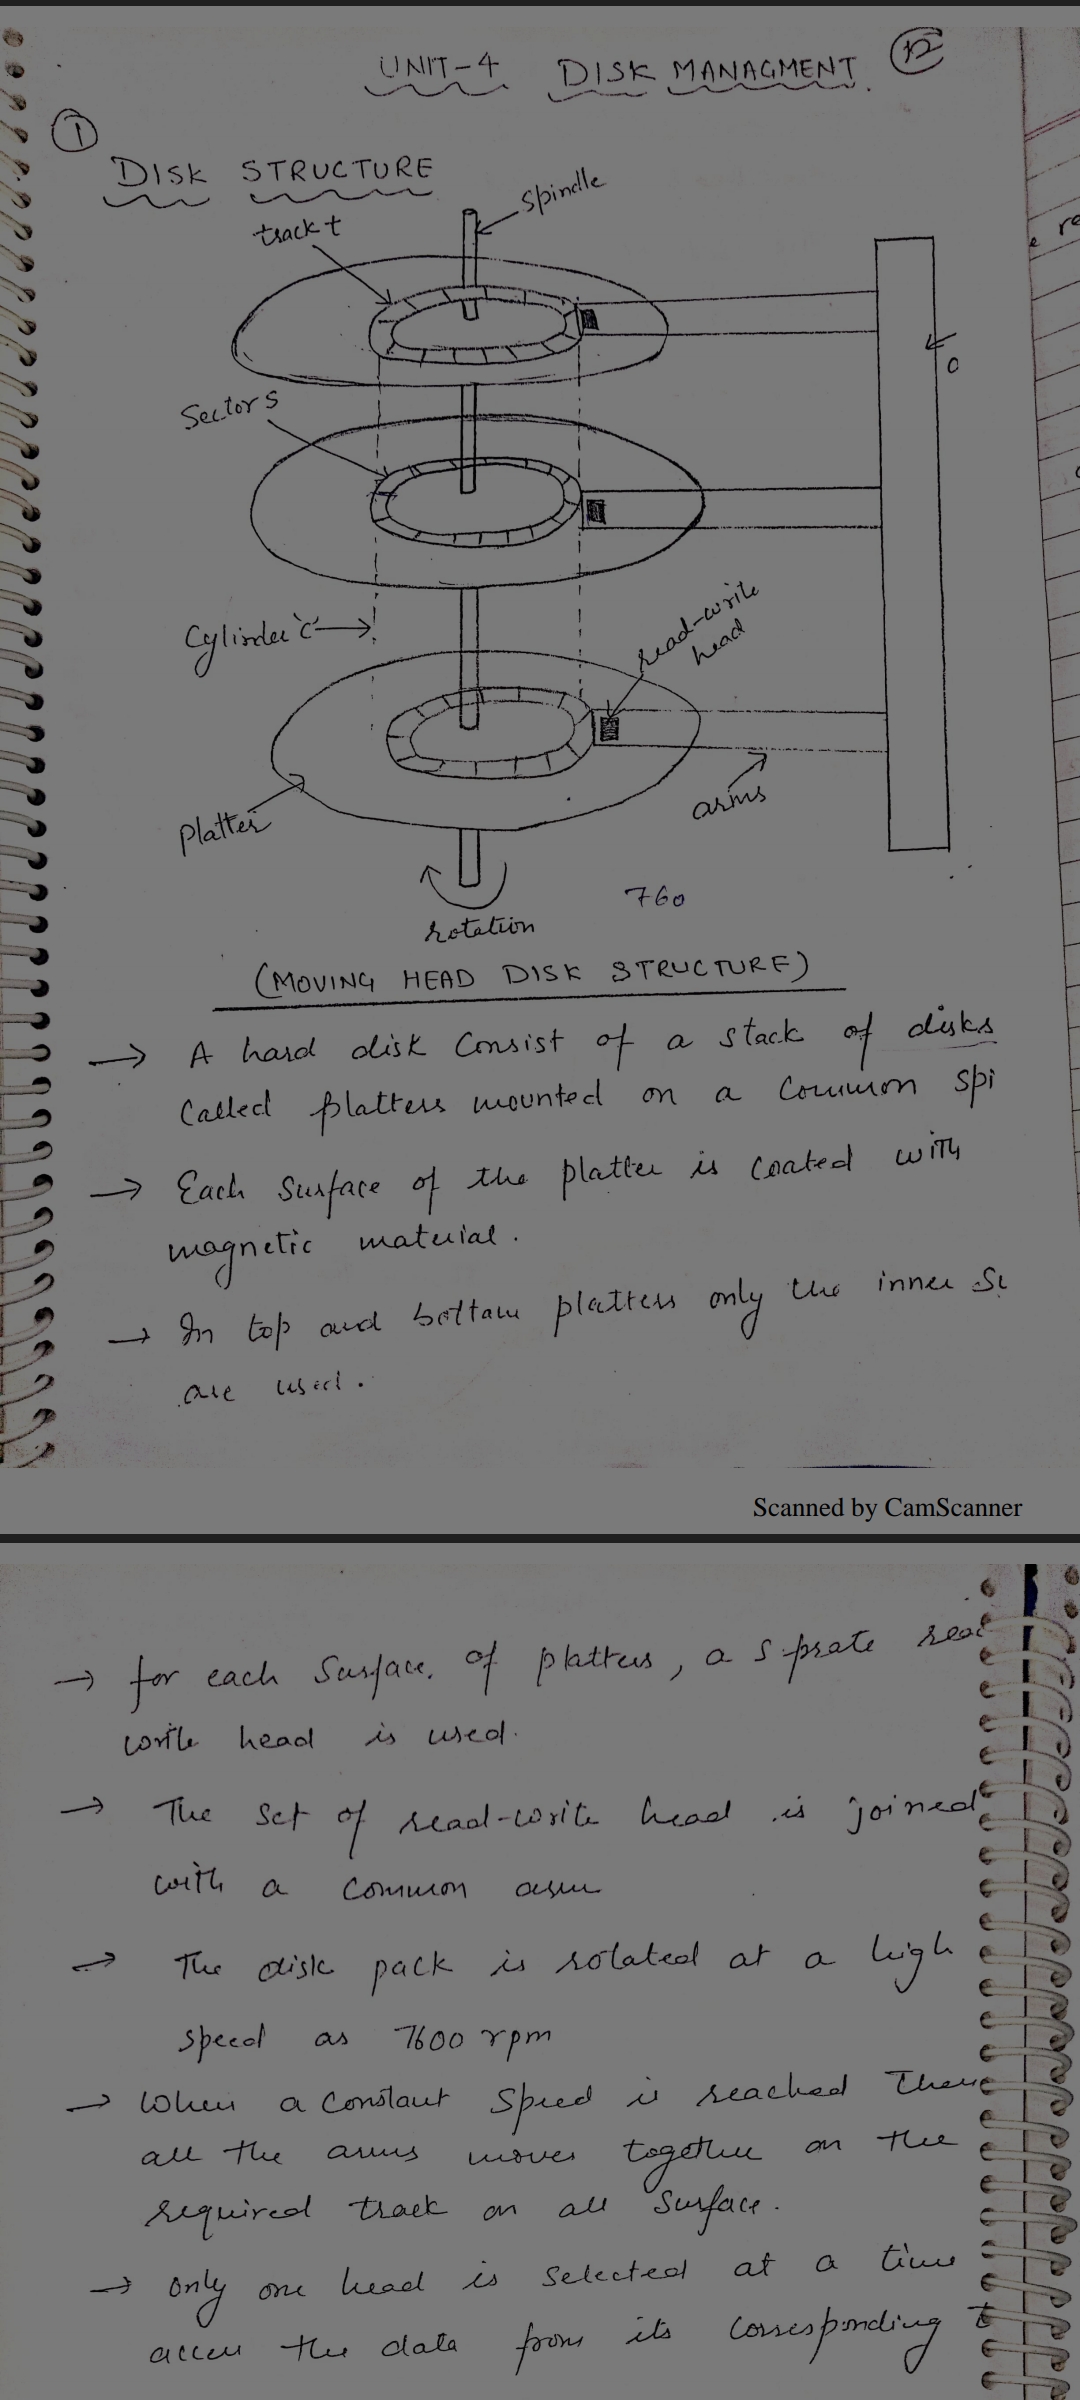 UNIT-4 DISK MANAGMENT. 12
1
DISK STRUCTURE
spindle
track t
Sectors
Cylinder 'c'
read-write
head
arms
platter
rotation
760
(MOVING HEAD DISK STRUCTURE)
→ A hard disk Consist of a stack of disks
Called platters mounted on a Common spi
→ Each Surface of the platter is coated with
magnetic material.
→ In top and bottam platters only the inner Su
are used.
Scanned by CamScanner
→ for each Surface. of platters, a sprate read
write head is used.
→ The set of read-write head is joined
with a common arm
→ The disk pack is rotated at a high
speed as 7600 rpm
→ When a Constant Speed is reached Then
all the arms moves together on the
required track on all Surface.
→ Only one head is Selected at a time
access the data from its corresponding t